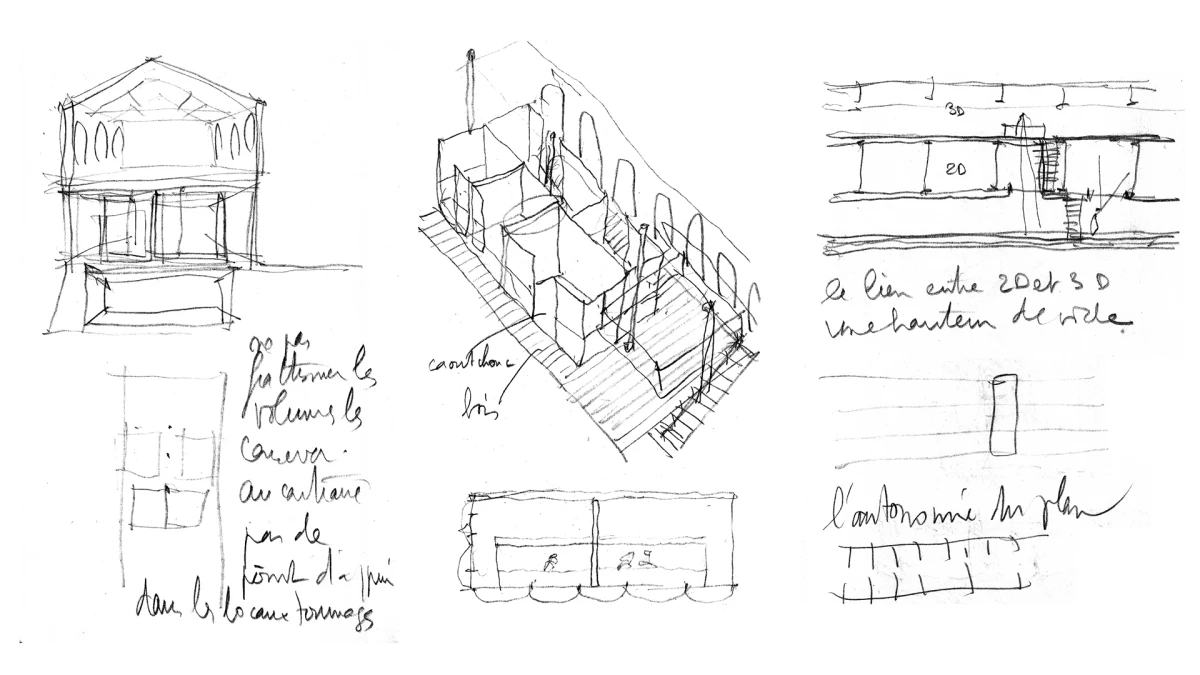 volumes les
conserver.
au contraire
pas de
point d'appui
dans les locaux tournages
caoutchouc
bois
3D
2D
le lien entre 2D et 3D
une hauteur de vide
l'autonomie du plan